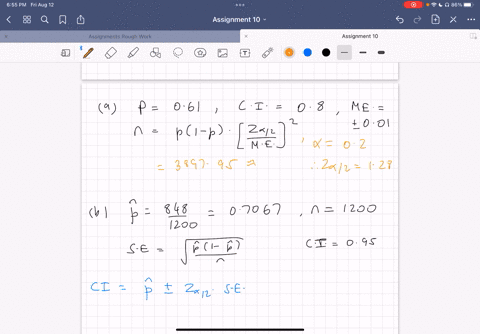 6:55 PM Fri Aug 12 86%
Assignment 10
Assignments Rough Work Assignment 10
(a) P = 0.61 , C.I. = 0.8 , ME = ± 0.01
n = p(1-p) · [Zα/2 / M.E.]² , α = 0.2
= 3897.95 ∴ Zα/2 = 1.28
(b) p̂ = 848/1200 = 0.7067 , n = 1200
S.E = √(p̂(1-p̂)/n) CI = 0.95
CI = p̂ ± Zα/2 · S.E.